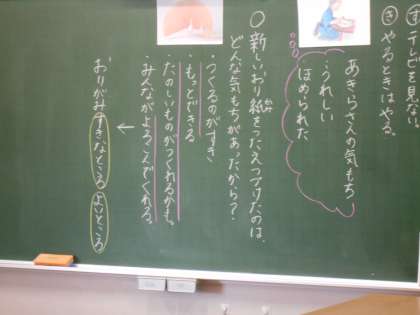 ㋢テレビを見ない。
㋖やるときはやる。
あきらさんの気もち
・うれしい
ほめられた
○新しいおり紙をつたえつづけたのは、
かみ
どんな気もちがあったから？
・つくるのがすき
・もっとできる
・たのしいものがつくれるかも。
・みんながよろこんでくれる。
↓
おりがみすきなところ よいところ